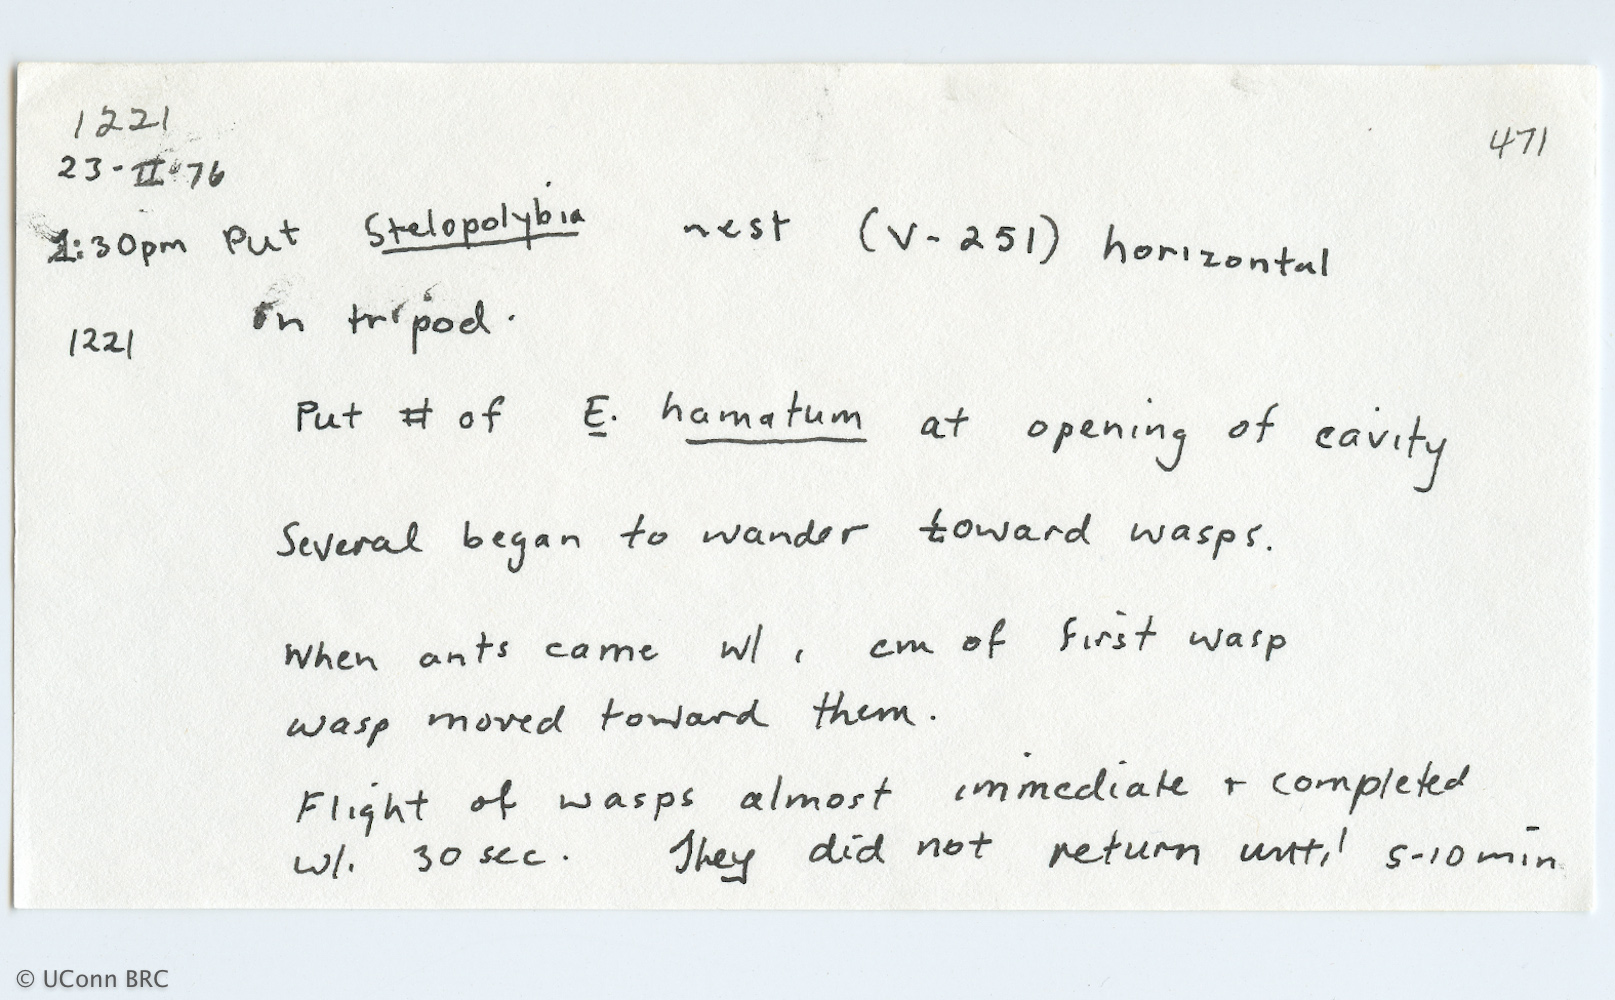 1221
471
23-II-76
1:30pm Put Stelopolybia nest (V-251) horizontal
on tripod.
1221
Put # of E. hamatum at opening of cavity
Several began to wander toward wasps.
When ants came w/ 1 cm of first wasp
wasp moved toward them.
Flight of wasps almost immediate + completed
w/. 30 sec. They did not return until 5-10 min
© UConn BRC